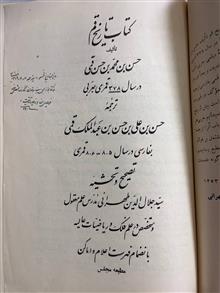 کتاب تاریخ قم
تألیف
حسن بن محمد بن حسن قمی
در سال ۳۷۸ قمری بعربی
ترجمه
حسن بن علی بن حسن بن عبدالملک قمی
بفارسی در سال ۸۰۵ - ۸۰۶ قمری
تصحیح و تحشیه
سید جلال الدین طهرانی مدرس علم معقول
و متخصص در علم فلک و ریاضیات عالیه
با نضمام فهرست اعلام و اماکن
مطبعه مجلس